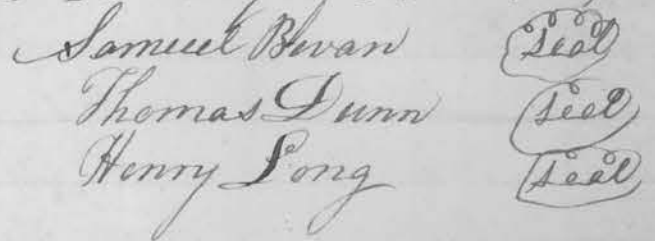 Samuel Bevan seal
Thomas Dunn seal
Henry Long seal